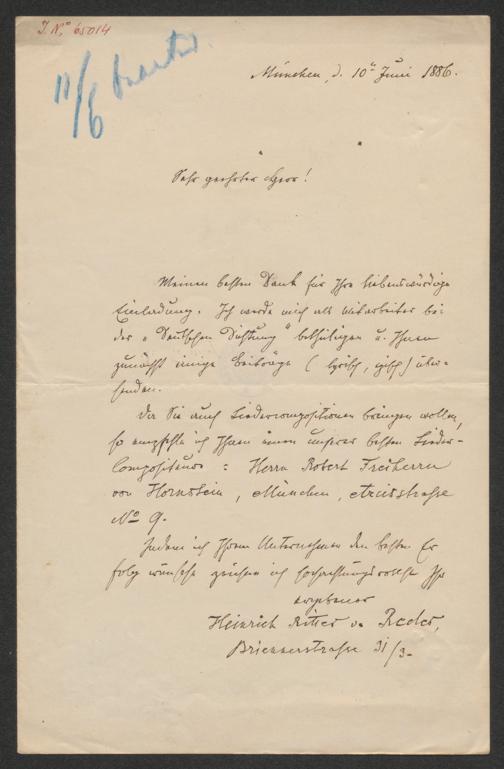 J. N.º 65014
11/6 beantw.
München, d. 10ⁿ Juni 1886.
Sehr geehrter Herr!
Meinen besten Dank für Ihre liebenswürdige
Einladung. Ich werde mich als Mitarbeiter bei
der „Deutschen Dichtung" betheiligen u. Ihnen
zunächst einige Beiträge (lyrisch, episch) über-
senden.
Da Sie auch Liedercompositionen bringen wollen,
so empfehle ich Ihnen einen unserer besten Lieder-
Compositeure: Herrn Robert Freiherrn
von Hornstein, München, Arcisstrasse
Nº 9.
Indem ich Ihrem Unternehmen den besten Er
folg wünsche zeichne ich hochachtungsvollst Ihr
ergebener
Heinrich Ritter v. Reder,
Briennerstrasse 31/3.